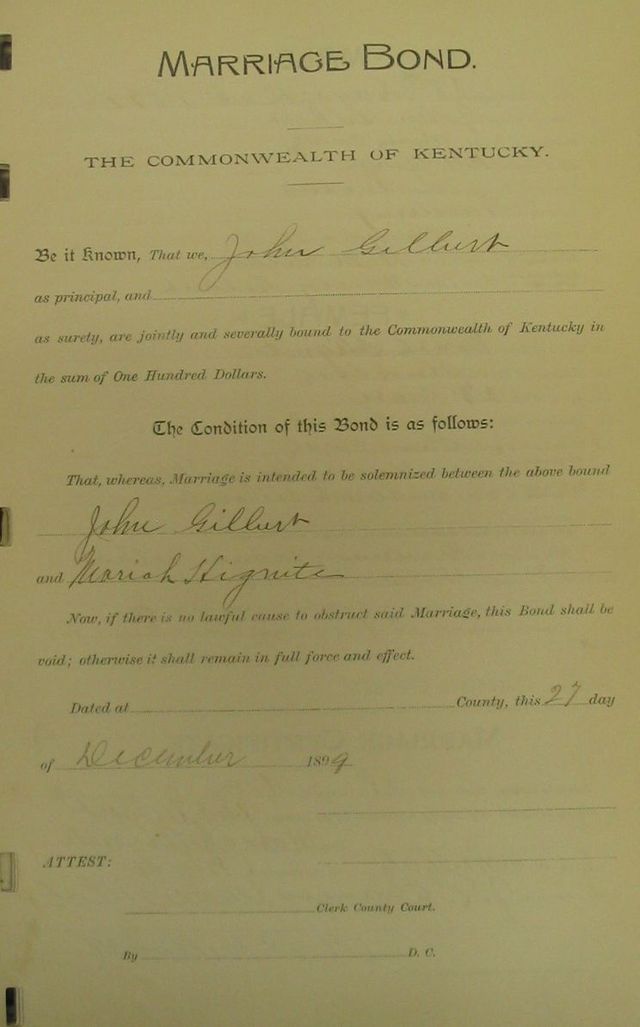 MARRIAGE BOND.
THE COMMONWEALTH OF KENTUCKY.
Be it Known, That we, John Gilbert
as principal, and
as surety, are jointly and severally bound to the Commonwealth of Kentucky in
the sum of One Hundred Dollars.
The Condition of this Bond is as follows:
That, whereas, Marriage is intended to be solemnized between the above bound
John Gilbert
and Mariah Hignite
Now, if there is no lawful cause to obstruct said Marriage, this Bond shall be
void; otherwise it shall remain in full force and effect.
Dated at County, this 27 day
of December 1899
ATTEST:
Clerk County Court.
By D. C.